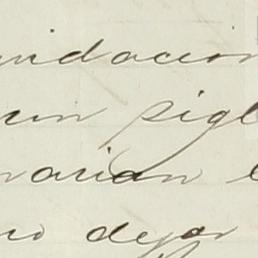 undacion
un sigl
narian
no dejar